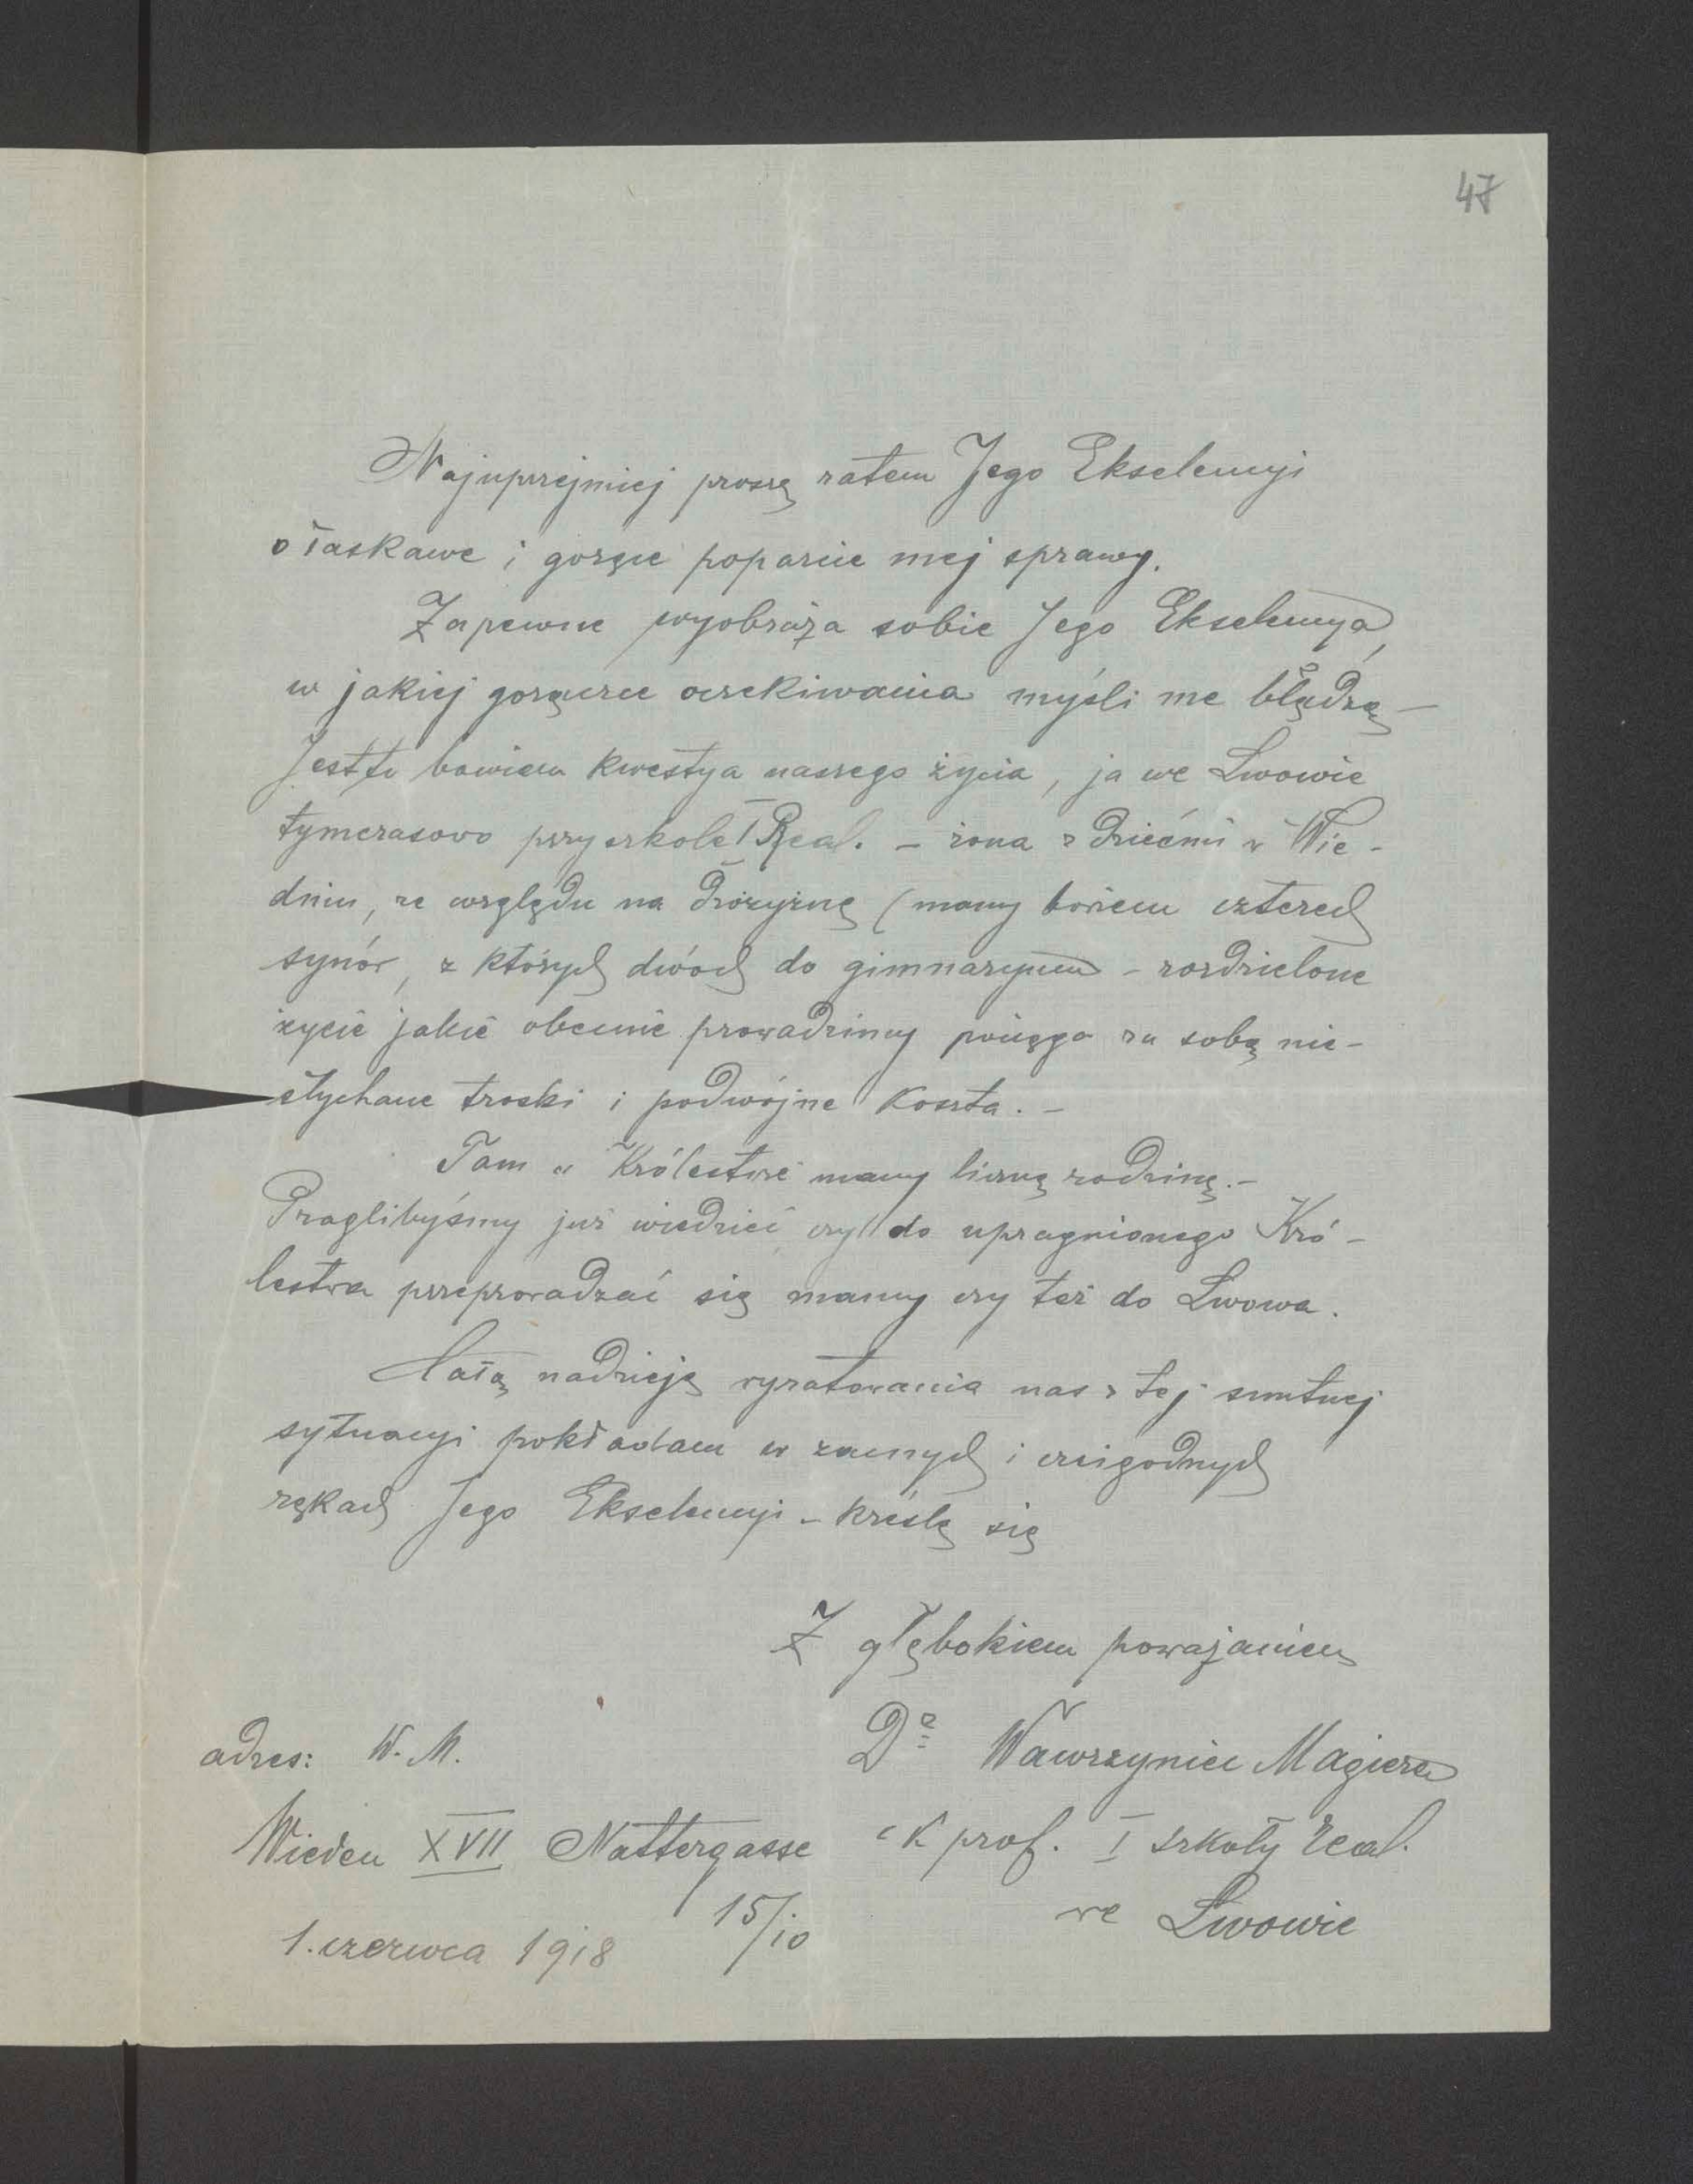 47
Najuprzejmiej proszę zatem Jego Ekscelencyi
o łaskawe i gorące poparcie mej sprawy.
Zapewne wyobraża sobie Jego Ekscelencya,
w jakiej gorączce oczekiwania myśli me błądzą –
Jest to bowiem kwestya naszego życia, ja we Lwowie
tymczasowo przy szkole I Real. – żona z dziećmi w Wie-
dniu, ze względu na drożyznę (mamy bowiem czterech
synów, z których dwóch do gimnazyum – rozdzielone
życie jakie obecnie prowadzimy pociąga za sobą nie-
słychane troski i podwójne koszta. –
Tam w Królestwie mamy liczną rodzinę. –
Praglibyśmy już wiedzieć, czy do upragnionego Kró-
lestwa przeprowadzać się mamy czy też do Lwowa.
Całą nadzieję wyratowania nas z tej smutnej
sytuacyi pokładam w zacnych i czcigodnych
rękach Jego Ekscelencyi – kreślę się
Z głębokiem poważaniem
Dr Wawrzyniec Magiera
c k prof. I szkoły real.
we Lwowie
adres: W. M.
Wiedeń XVII Nattergasse
15/10
1. czerwca 1918